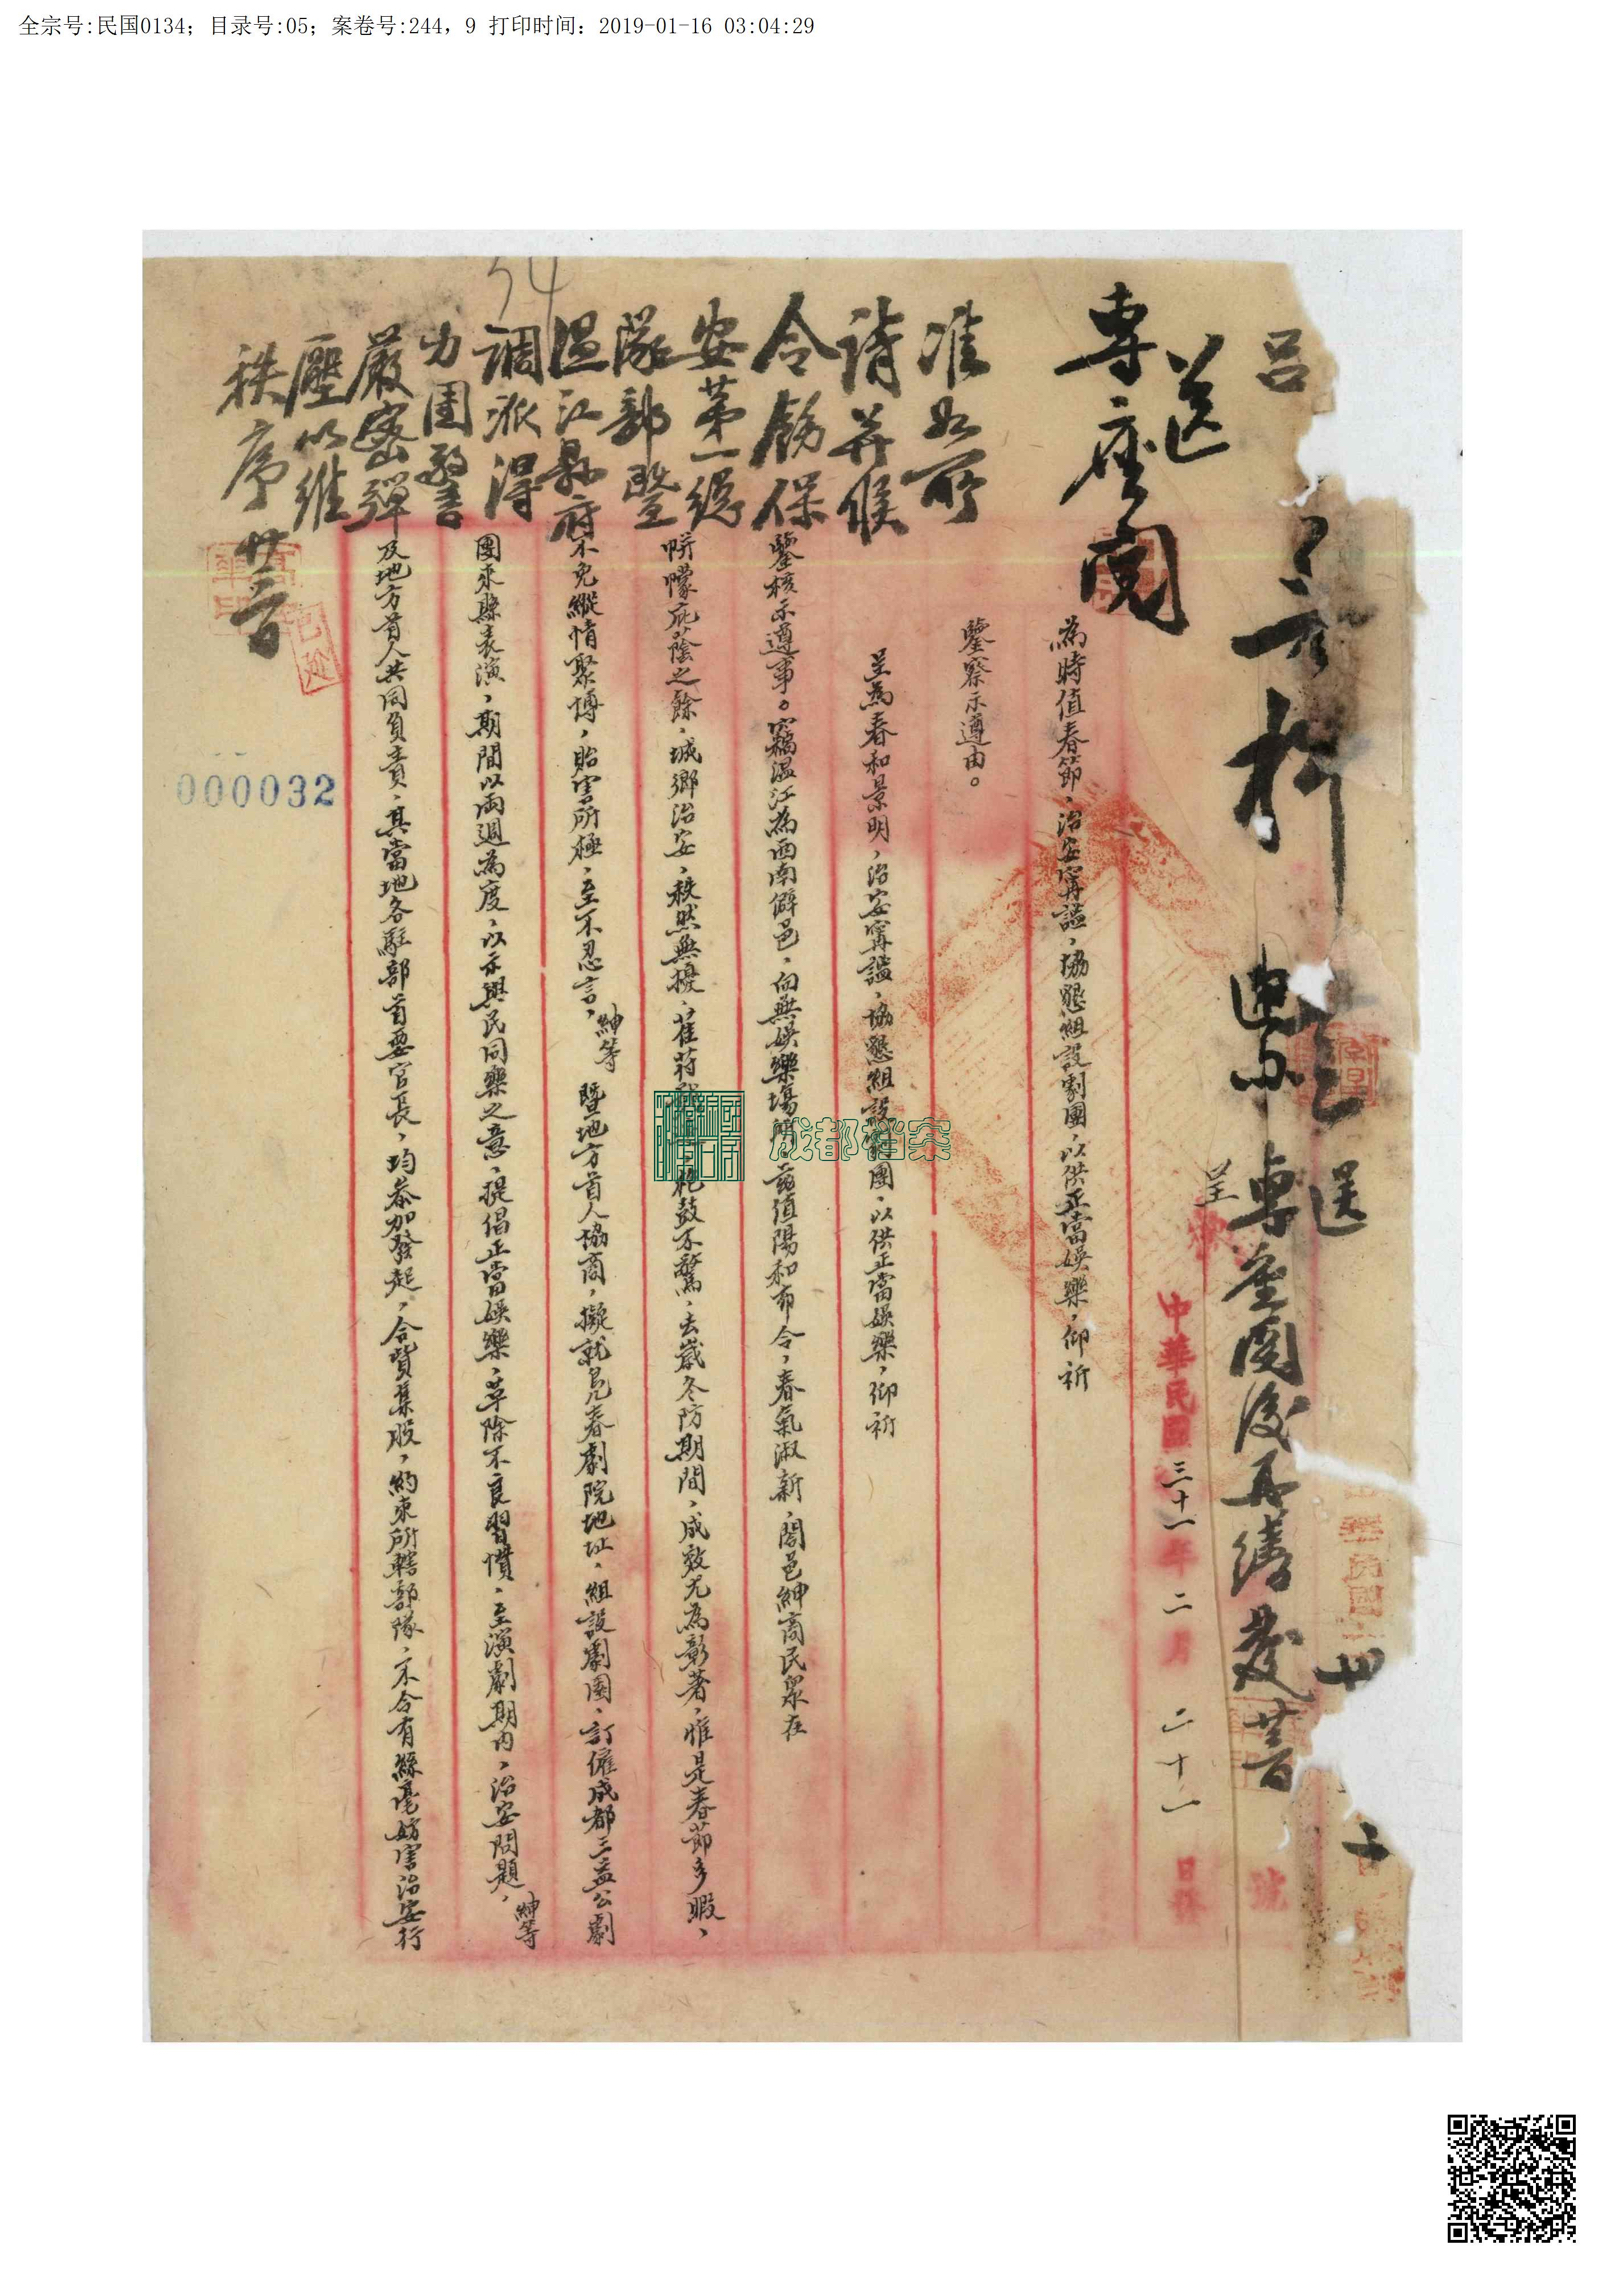 全宗号:民国0134; 目录号:05; 案卷号:244, 9 打印时间: 2019-01-16 03:04:29
呂
送專座閱後再繕發
呈
中華民國三十一年二月二十一日發
號
送
專座閱
為時值春節，治安甯謐，協懇組設劇團，以供正當娛樂，仰祈
鑒察示遵由。
呈為春和景明，治安甯謐，協懇組設劇團，以供正當娛樂，仰祈
鑒核示遵事。竊溫江為西南僻邑，向無娛樂場所，茲值陽和布令，春氣淑新，闔邑紳商民眾在
帡幪庇蔭之餘，城鄉治安，秩然無擾，萑苻 枹鼓不驚，去歲冬防期間，成效尤為彰著，惟是春節多暇，
不免縱情聚博，貽害所極，至不忍言，紳等暨地方首人協商，擬就 春劇院地址，組設劇團，訂僱成都三益公劇
團來縣表演，期間以兩週為度，以示與民同樂之意，提倡正當娛樂，革除不良習慣，至演劇期內，治安問題，紳等
及地方首人共同負責，其當地各駐部首要官長，均參加發起，合資集股，約束所轄部隊，不令有絲毫妨害治安行
准如所
請并候
令飭保
安第一總
隊部暨
溫江縣府
調派得
力團警
嚴密彈
壓以維
秩序
000032
成都档案